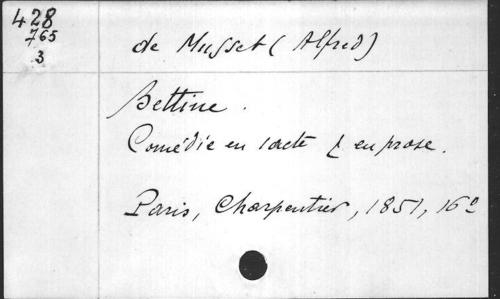 428
765
3
de Musset (Alfred)
Bettine.
Comédie en 1 acte & en prose.
Paris, Charpentier, 1851, 16º